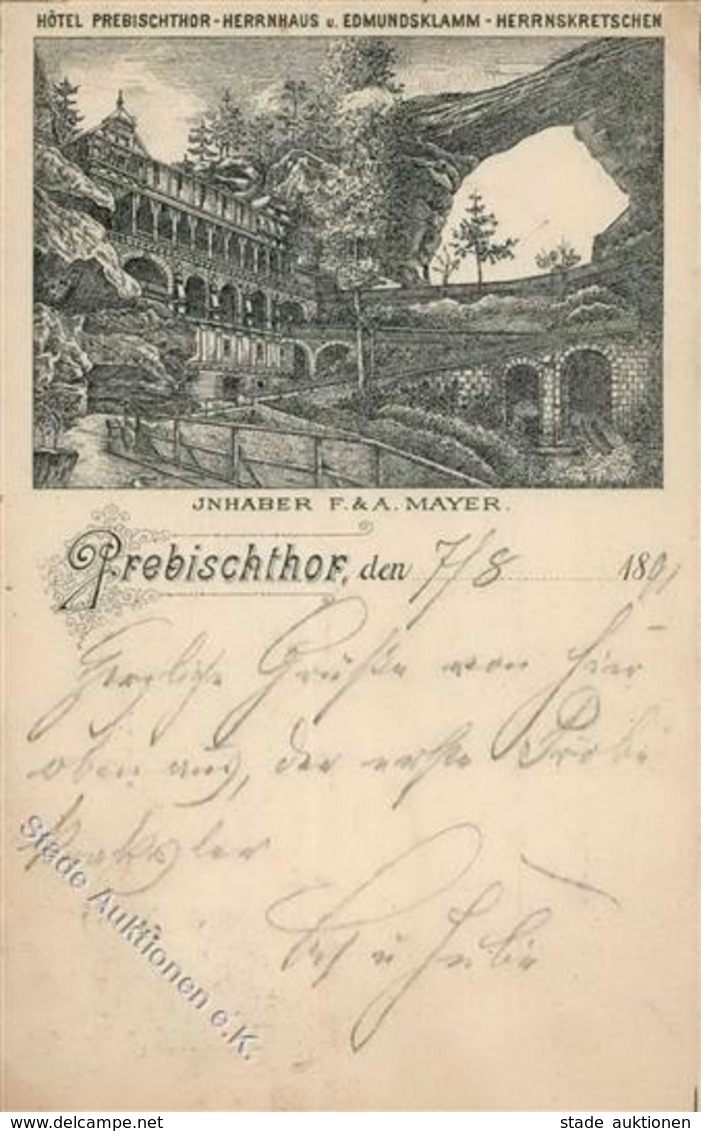 HÔTEL PREBISCHTHOR-HERRNHAUS u. EDMUNDSKLAMM - HERRNSKRETSCHEN
JNHABER F. & A. MAYER.
Prebischthor, den 7/8 1891
Herzliche Grüße von hier
oben aus, der erste
Stade Auktionen e.K.
www.delcampe.net
stade auktionen